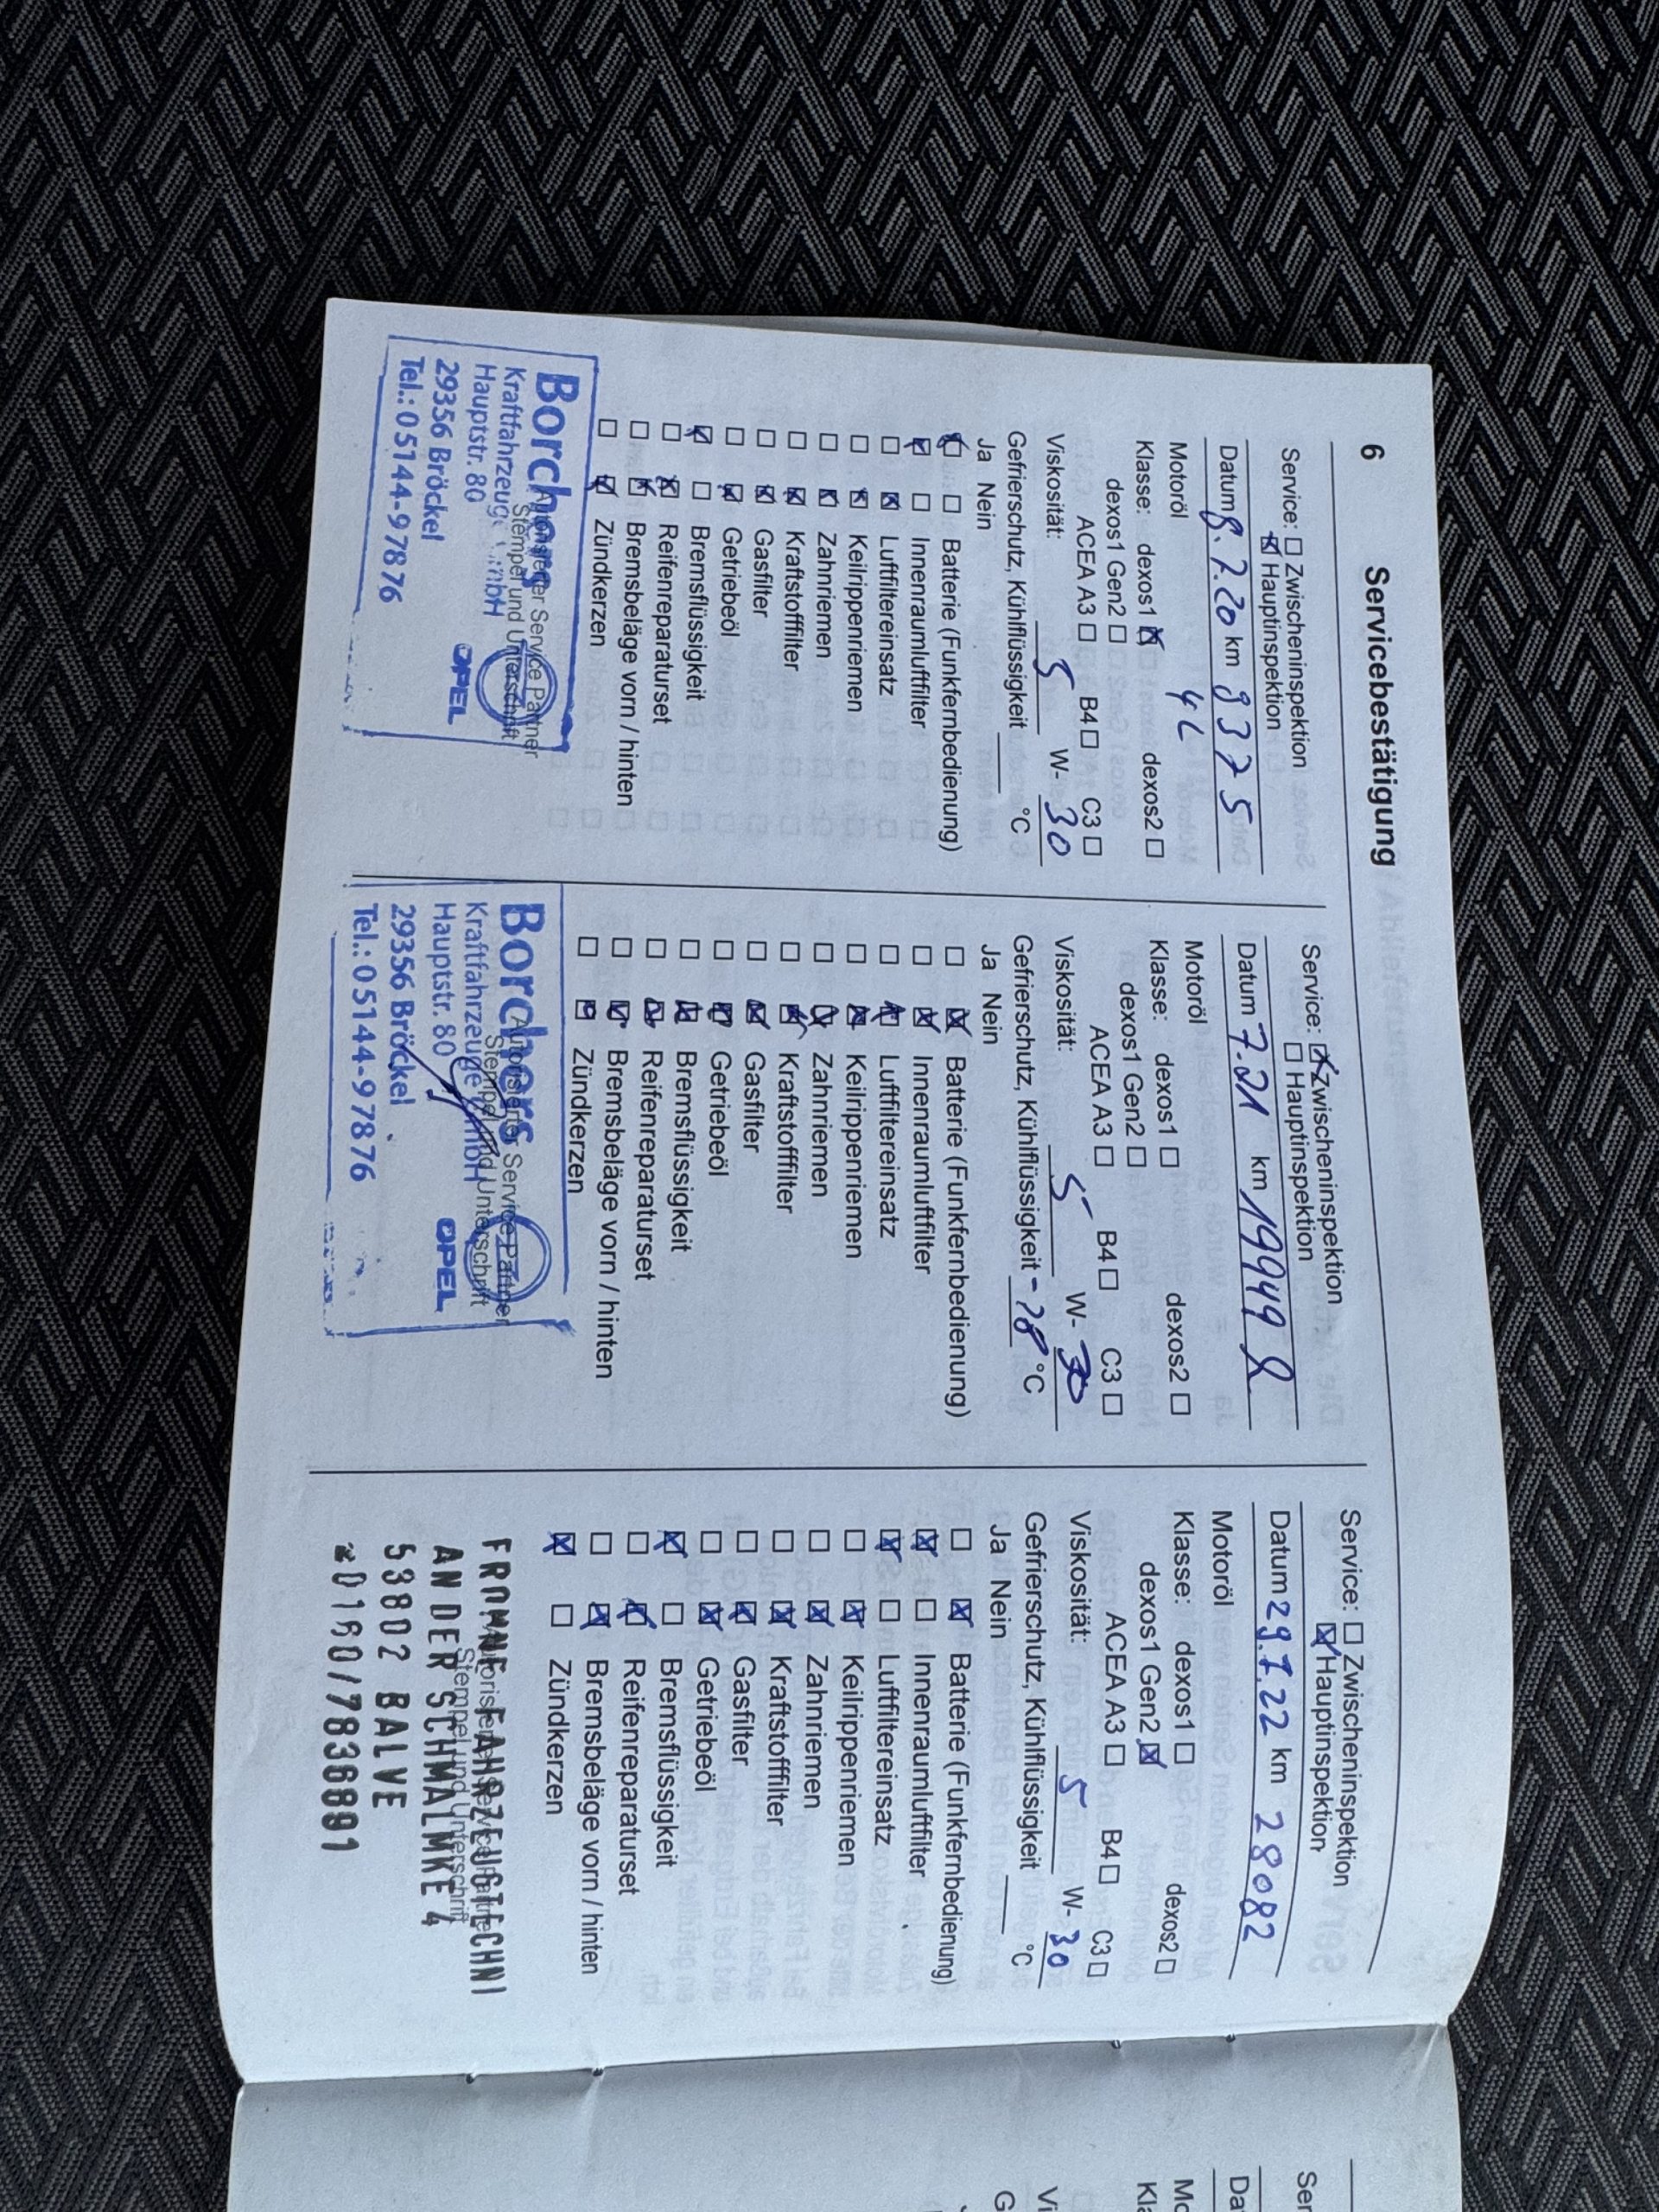 6
Servicebestätigung
Service: ☐ Zwischeninspektion
☒ Hauptinspektion
Datum 8.7.20 km 9375
Motoröl 4L
Klasse: dexos1 ☒ dexos2 ☐
dexos1 Gen2 ☐
ACEA A3 ☐ B4 ☐ C3 ☐
Viskosität: 5 W- 30
Gefrierschutz, Kühlflüssigkeit °C
Ja Nein
☒ ☐ Batterie (Funkfernbedienung)
☒ ☐ Innenraumluftfilter
☐ ☒ Luftfiltereinsatz
☐ ☒ Keilrippenriemen
☐ ☒ Zahnriemen
☐ ☒ Kraftstofffilter
☐ ☒ Gasfilter
☐ ☒ Getriebeöl
☒ ☐ Bremsflüssigkeit
☐ ☒ Reifenreparaturset
☐ ☒ Bremsbeläge vorn / hinten
☐ ☒ Zündkerzen
Autorisierter Service Partner
Stempel und Unterschrift
Borchers
Kraftfahrzeuge GmbH
Hauptstr. 80
29356 Bröckel
Tel.: 05144-97876
OPEL
Service: ☒ Zwischeninspektion
☐ Hauptinspektion
Datum 7.21 km 19949
Motoröl
Klasse: dexos1 ☐ dexos2 ☐
dexos1 Gen2 ☐
ACEA A3 ☐ B4 ☐ C3 ☐
Viskosität: 5 W- 30
Gefrierschutz, Kühlflüssigkeit °C
Ja Nein
☐ ☒ Batterie (Funkfernbedienung)
☐ ☒ Innenraumluftfilter
☐ ☒ Luftfiltereinsatz
☐ ☒ Keilrippenriemen
☐ ☒ Zahnriemen
☐ ☒ Kraftstofffilter
☐ ☒ Gasfilter
☐ ☒ Getriebeöl
☐ ☒ Bremsflüssigkeit
☐ ☒ Reifenreparaturset
☐ ☒ Bremsbeläge vorn / hinten
☐ ☒ Zündkerzen
Autorisierter Service Partner
Stempel und Unterschrift
Borchers
Kraftfahrzeuge GmbH
Hauptstr. 80
29356 Bröckel
Tel.: 05144-97876
OPEL
Service: ☐ Zwischeninspektion
☒ Hauptinspektion
Datum 29.7.22 km 28082
Motoröl
Klasse: dexos1 ☐ dexos2 ☐
dexos1 Gen2 ☒
ACEA A3 ☐ B4 ☐ C3 ☐
Viskosität: 5 W- 30
Gefrierschutz, Kühlflüssigkeit °C
Ja Nein
☐ ☒ Batterie (Funkfernbedienung)
☒ ☐ Innenraumluftfilter
☒ ☐ Luftfiltereinsatz
☐ ☒ Keilrippenriemen
☐ ☒ Zahnriemen
☐ ☒ Kraftstofffilter
☐ ☒ Gasfilter
☐ ☒ Getriebeöl
☒ ☐ Bremsflüssigkeit
☐ ☒ Reifenreparaturset
☐ ☒ Bremsbeläge vorn / hinten
☒ ☐ Zündkerzen
Autorisierter Service Partner
Stempel und Unterschrift
ANDER SCHMALMKE 4
53802 BALVE